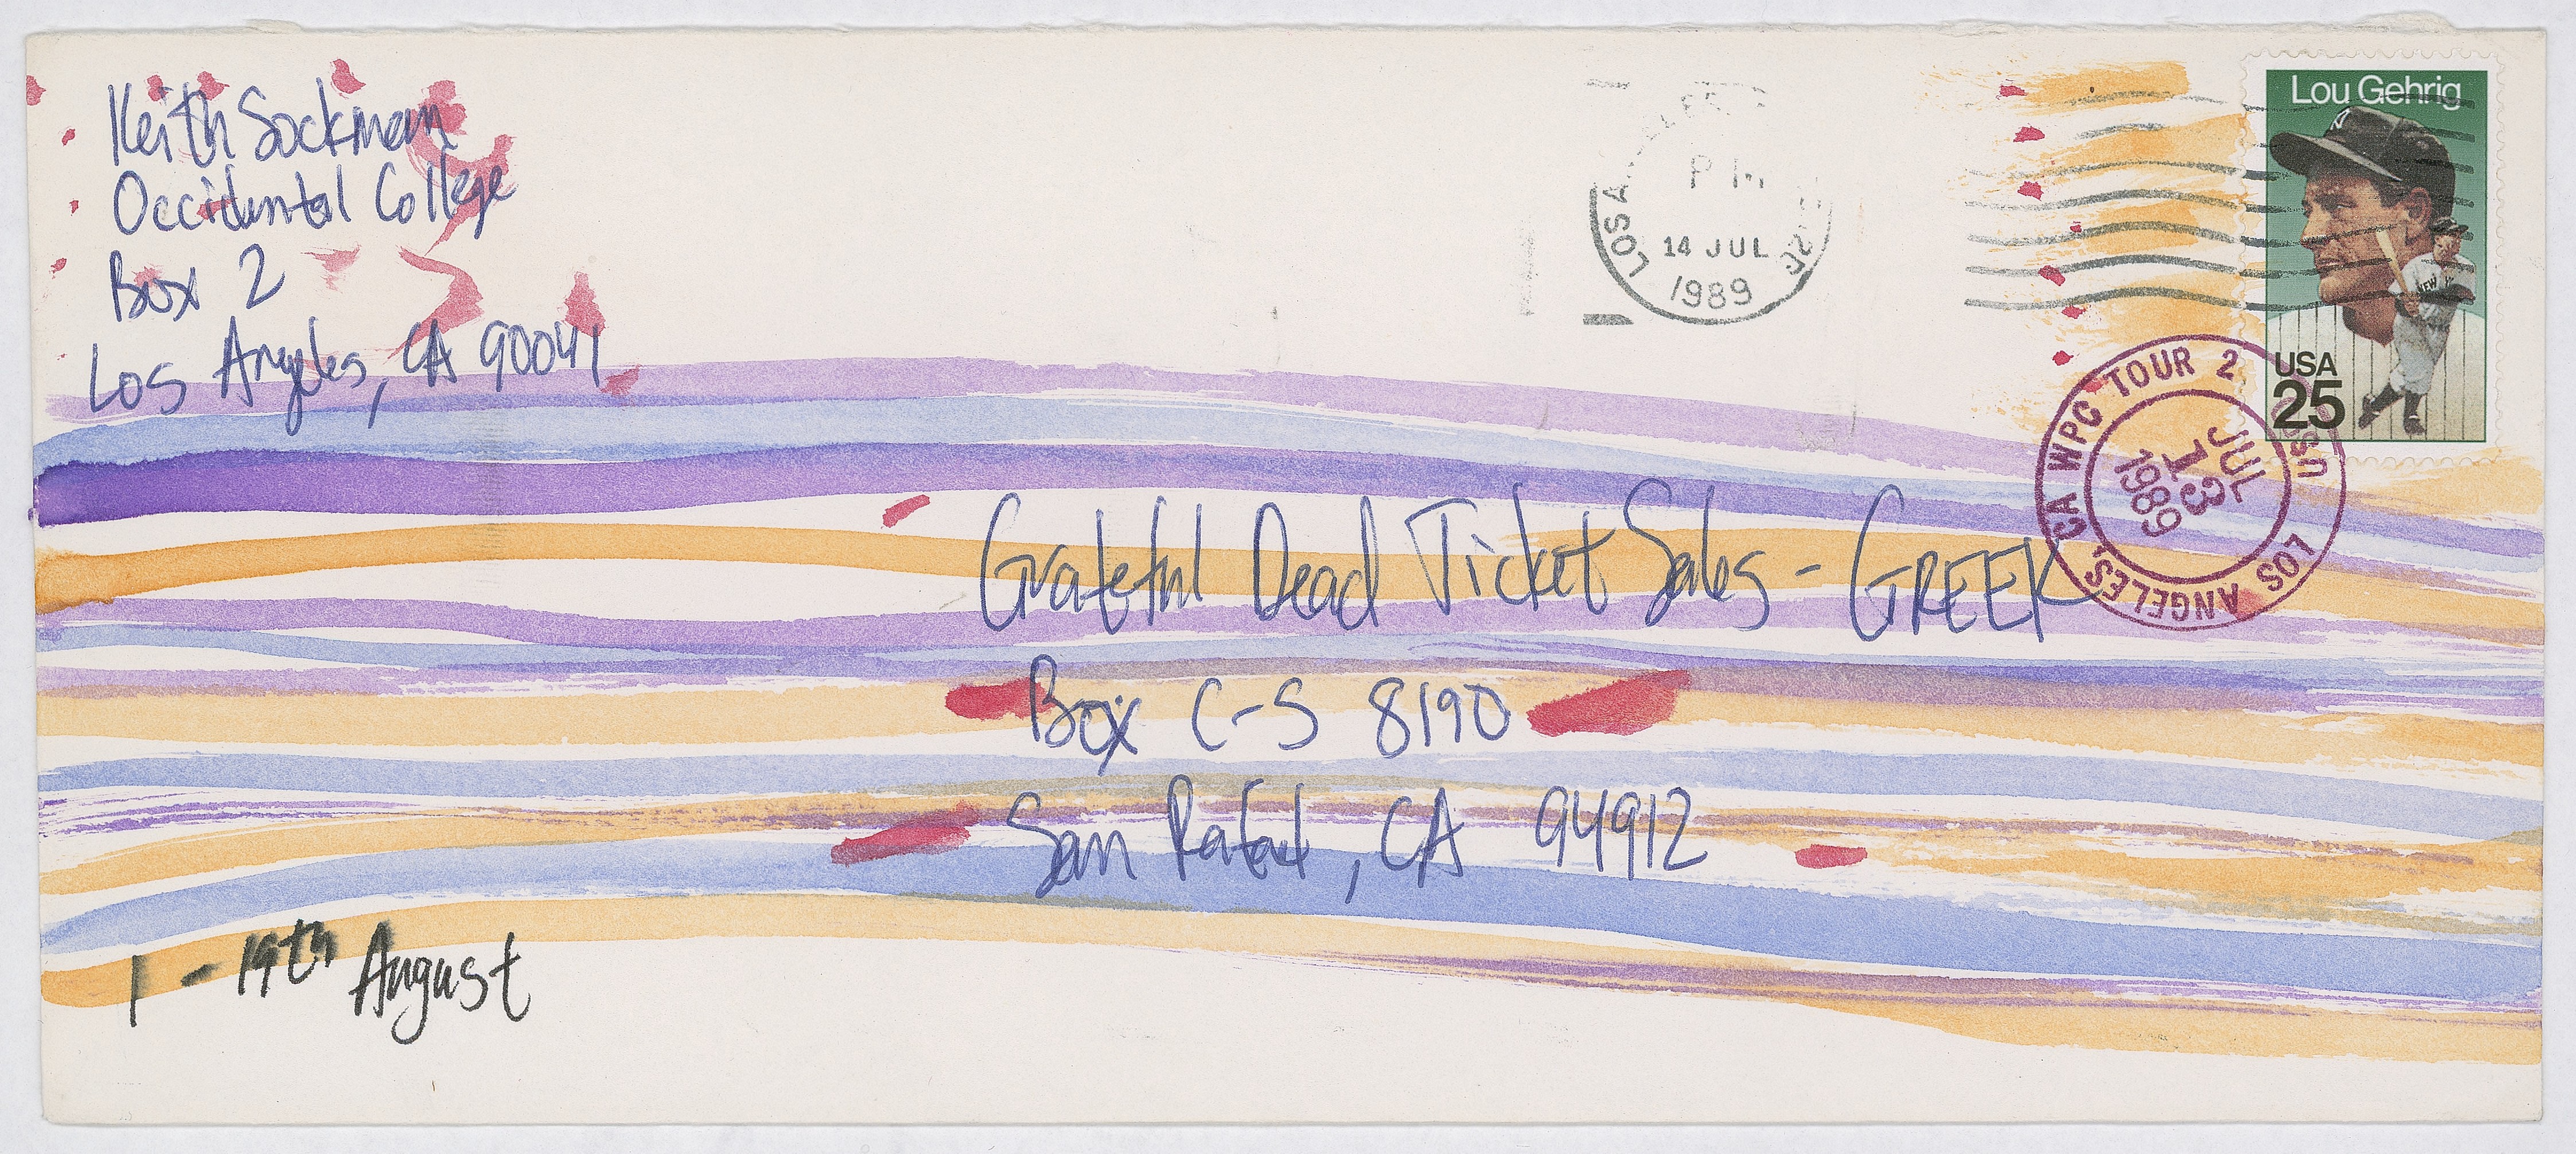 Keith Sockman
Occidental College
Box 2
Los Angeles, CA 90041
LOS ANGELES
PM
14 JUL
1989
Lou Gehrig
NEW Y
USA
25
LOS ANGELES, CA WPC TOUR 2
USPS
JUL
13
1989
Grateful Dead Ticket Sales - GREEK
Box C-S 8190
San Rafael, CA 94912
1 - 19th August